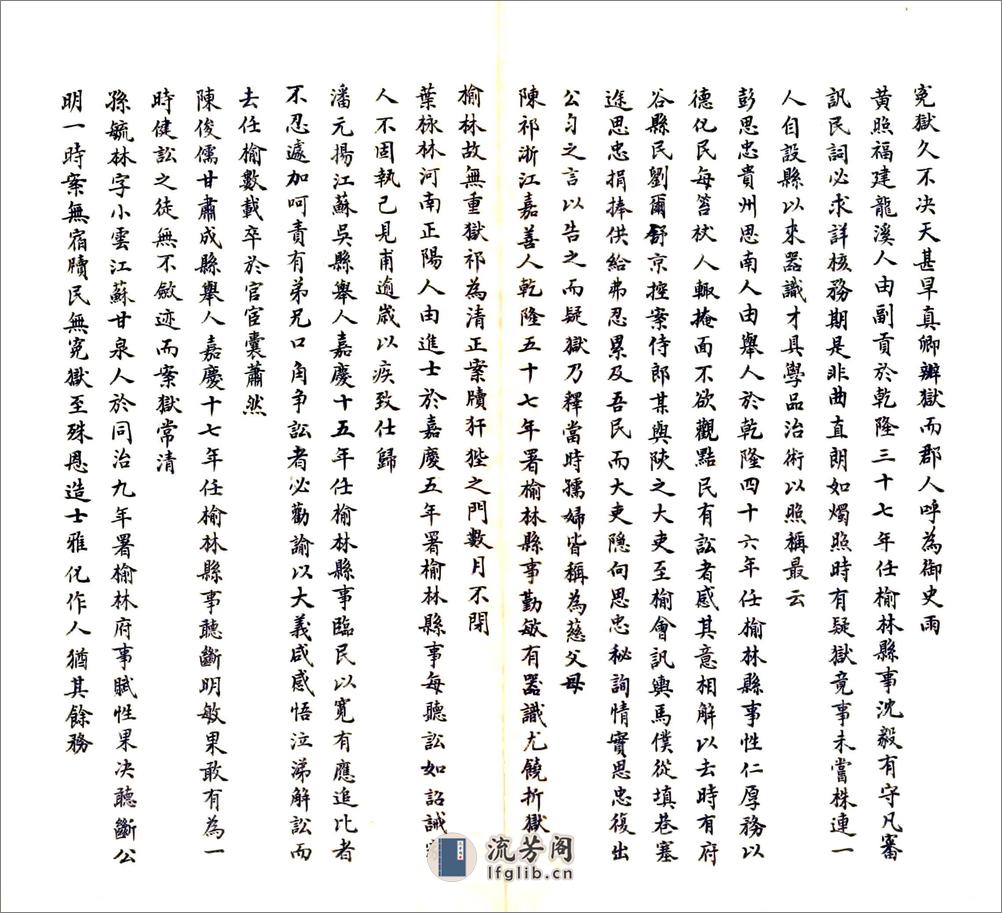 冤獄久不决天甚旱真卿辦獄而郡人呼為御史雨
黄照福建龍溪人由副貢於乾隆三十七年任榆林縣事沈毅有守凡審
訊民詞必求詳核務期是非曲直朗如燭照時有疑獄竟事未嘗株連一
人自設縣以來器識才具學品治術以照稱最云
彭思忠貴州思南人由舉人於乾隆四十六年任榆林縣事性仁厚務以
德化民每笞杖人輙掩面不欲觀點民有訟者感其意相解以去時有府
谷縣民劉爾舒京控案侍郎某與陝之大吏至榆會訊輿馬僕從填巷塞
途思忠捐捧供給弗忍累及吾民而大吏隱向思忠秘詢情實思忠復出
公匀之言以告之而疑獄乃釋當時孺婦皆稱為慈父母
陳祁浙江嘉善人乾隆五十七年署榆林縣事勤敏有器識尤饒折獄
榆林故無重獄祁為清正案牘犴狴之門數月不閉
葉栐林河南正陽人由進士於嘉慶五年署榆林縣事每聽訟如詔誡
人不固執己見甫逾嵗以疾致仕歸
潘元揚江蘇吳縣舉人嘉慶十五年任榆林縣事臨民以寬有應追比者
不忍遽加呵責有弟兄口角争訟者必勸諭以大義咸感悟泣涕解訟而
去任榆數載卒於官宦囊蕭然
陳俊儒甘肅成縣舉人嘉慶十七年任榆林縣事聽斷明敏果敢有為一
時健訟之徒無不斂迹而案獄常清
孫毓林字小雲江蘇甘泉人於同治九年署榆林府事賦性果决聽斷公
明一時案無宿牘民無冤獄至殊恩造士雅化作人猶其餘務
流芳阁
lfglib.cn